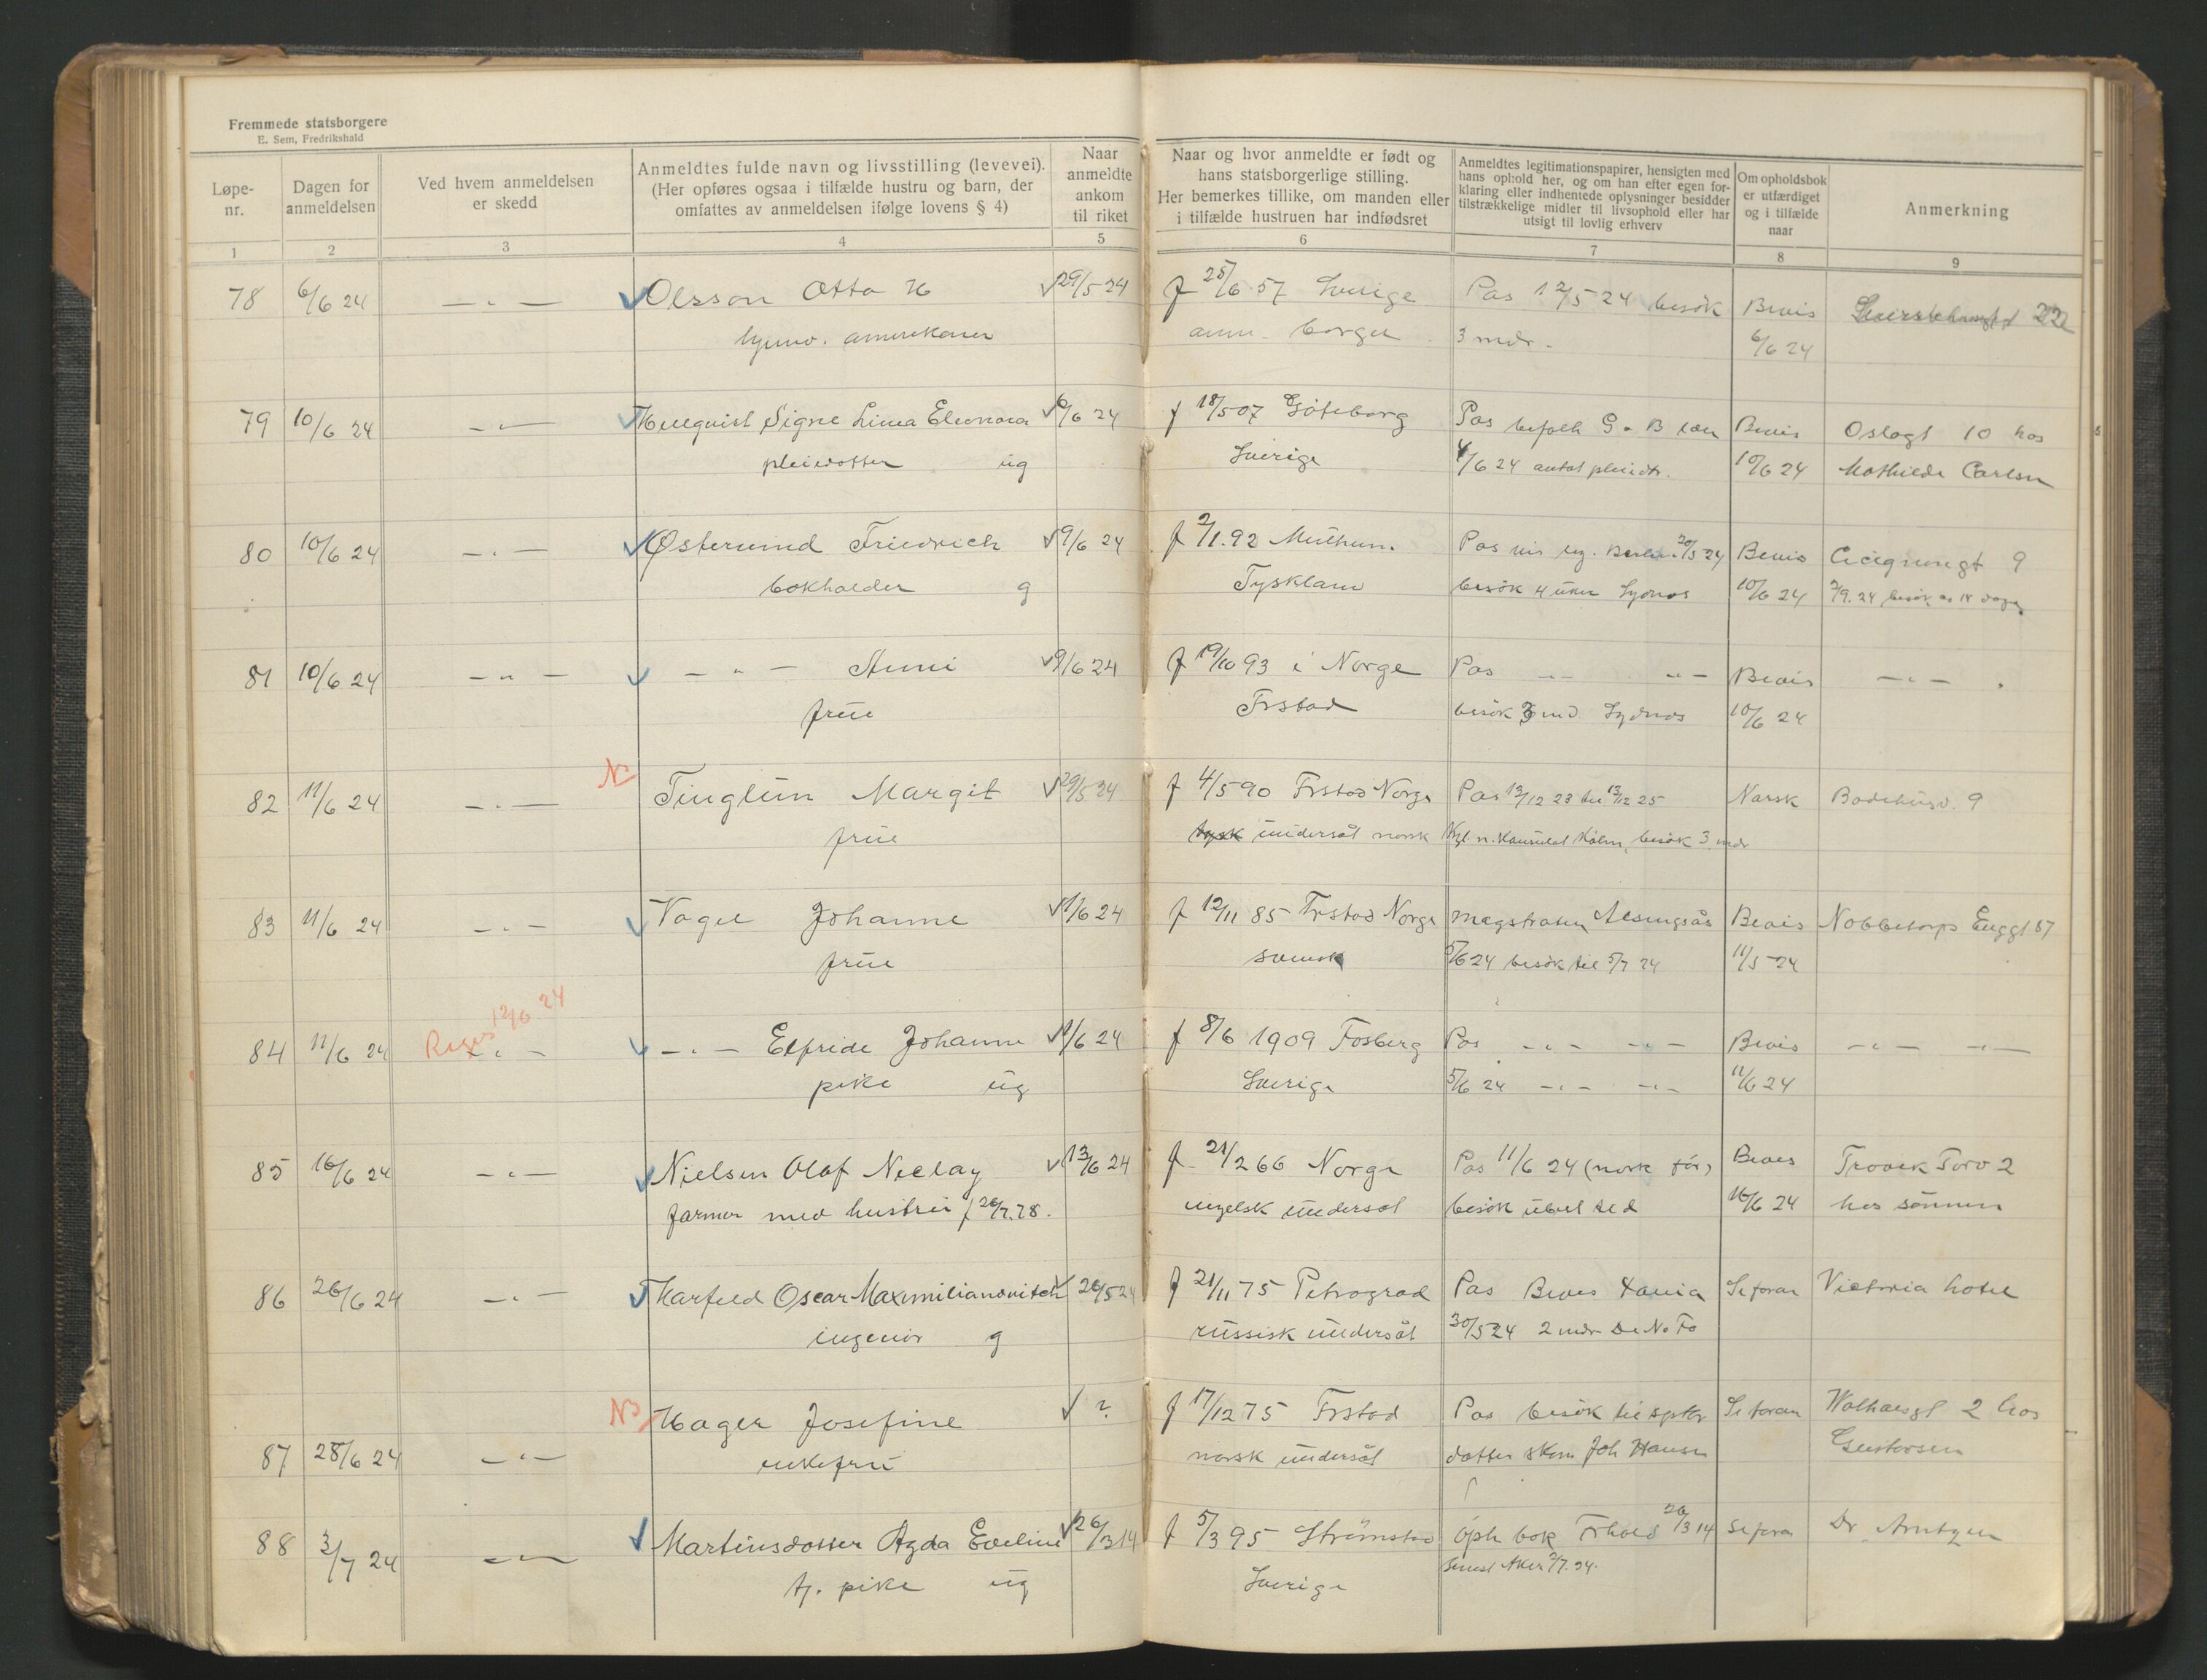 Fremmede statsborgere
E. Sem, Fredrikshald
Løpe-
nr.
Dagen for
anmeldelsen
Ved hvem anmeldelsen
er skedd
Anmeldtes fulde navn og livsstilling (levevei).
(Her opføres ogsaa i tilfælde hustru og barn, der
omfattes av anmeldelsen ifølge lovens § 4)
Naar
anmeldte
ankom
til riket
Naar og hvor anmeldte er født og
hans statsborgerlige stilling.
Her bemerkes tillike, om manden eller
i tilfælde hustruen har indfødsret
Anmeldtes legitimationspapirer, hensigten med
hans ophold her, og om han efter egen for-
klaring eller indhentede oplysninger besidder
tilstrækkelige midler til livsophold eller har
utsigt til lovlig erhverv
Om opholdsbok
er utfærdiget
og i tilfælde
naar
Anmerkning
1 2 3 4 5 6 7 8 9
78 6/6 24 — " — Olsson Otto H 29/5 24 f 25/6 57 Sverige Pas 12/5 24 besök Bevis 22
amerikaner am. borger 3 mdr. 6/6 24
79 10/6 24 — " — Signe Linea Eleonora 6/24 f 18/5 07 Göteborg Pas G - B Bevis Oslogt 10 hos
pleiedotter ug Sverige 4/6 24 antat pleiedtr. 10/6 24 Mathilde Carlsen
80 10/6 24 — " — Østerlund Friedrich 9/6 24 f 2/1.92 Pas 20/5 24 Bevis Cicignongt 9
bokholder g Tyskland besök 4 uker 10/6 24 2/9.24 besök 14 dager
81 10/6 24 — " — — " — Anni 9/6 24 f 19/10 93 i Norge Pas — " — — " — Bevis — " —
frue Frstad besök 10/6 24
N
82 11/6 24 — " — Tinglum Margit 29/5 24 f 4/5 90 Frstad Norge Pas 13/12 23 til 13/12 25 Norsk Badehusg. 9
frue tysk undersåt norsk Kgl. n. besök 3 mdr
83 11/6 24 — " — Vogel Johanne 11/6 24 f 12/11 85 Frstad Norge magstraten Alingsås Bevis Nabbetorp Enggt 87
frue svensk 5/6 24 besök til 5/7 24 11/5 24
12/6 24
84 11/6 24 — " — — " — Elfride Johanne 11/6 24 f 8/6 1909 Fosberg Pas — " — — " — Bevis — " — — " —
pike ug Sverige 5/6 24 — " — — " — 11/6 24
85 16/6 24 — " — Nielsen Olaf Nielay 13/6 24 f 21/2 66 Norge Pas 11/6 24 (norsk Bevis Torv 2
farmer med hustru f 26/7.78. engelsk undersåt besök 16/6 24 hos sönnen
86 26/6 24 — " — Harfeld Oscar Maximilianovitch 26/5 24 f 21/11 75 Petrograd Pas Bevis Xania Se foran Victoria hotel
ingeniör g russisk undersåt 30/5 24 2 mdr De No Fa
N
87 28/6 24 — " — Hager Josefine ? f 17/12 75 Frstad Pas besök til Se foran 2 hos
enkefru norsk undersåt datter skom Joh Hansen Gustavsen
88 3/7 24 — " — Martinsdotter Agda Eveline 26/3 14 f 5/3 95 Strömstad Oph bok Frhald 26/3 14 Se foran Dr Arntzen
tj. pike ug Sverige senest Aker 2/7.24.